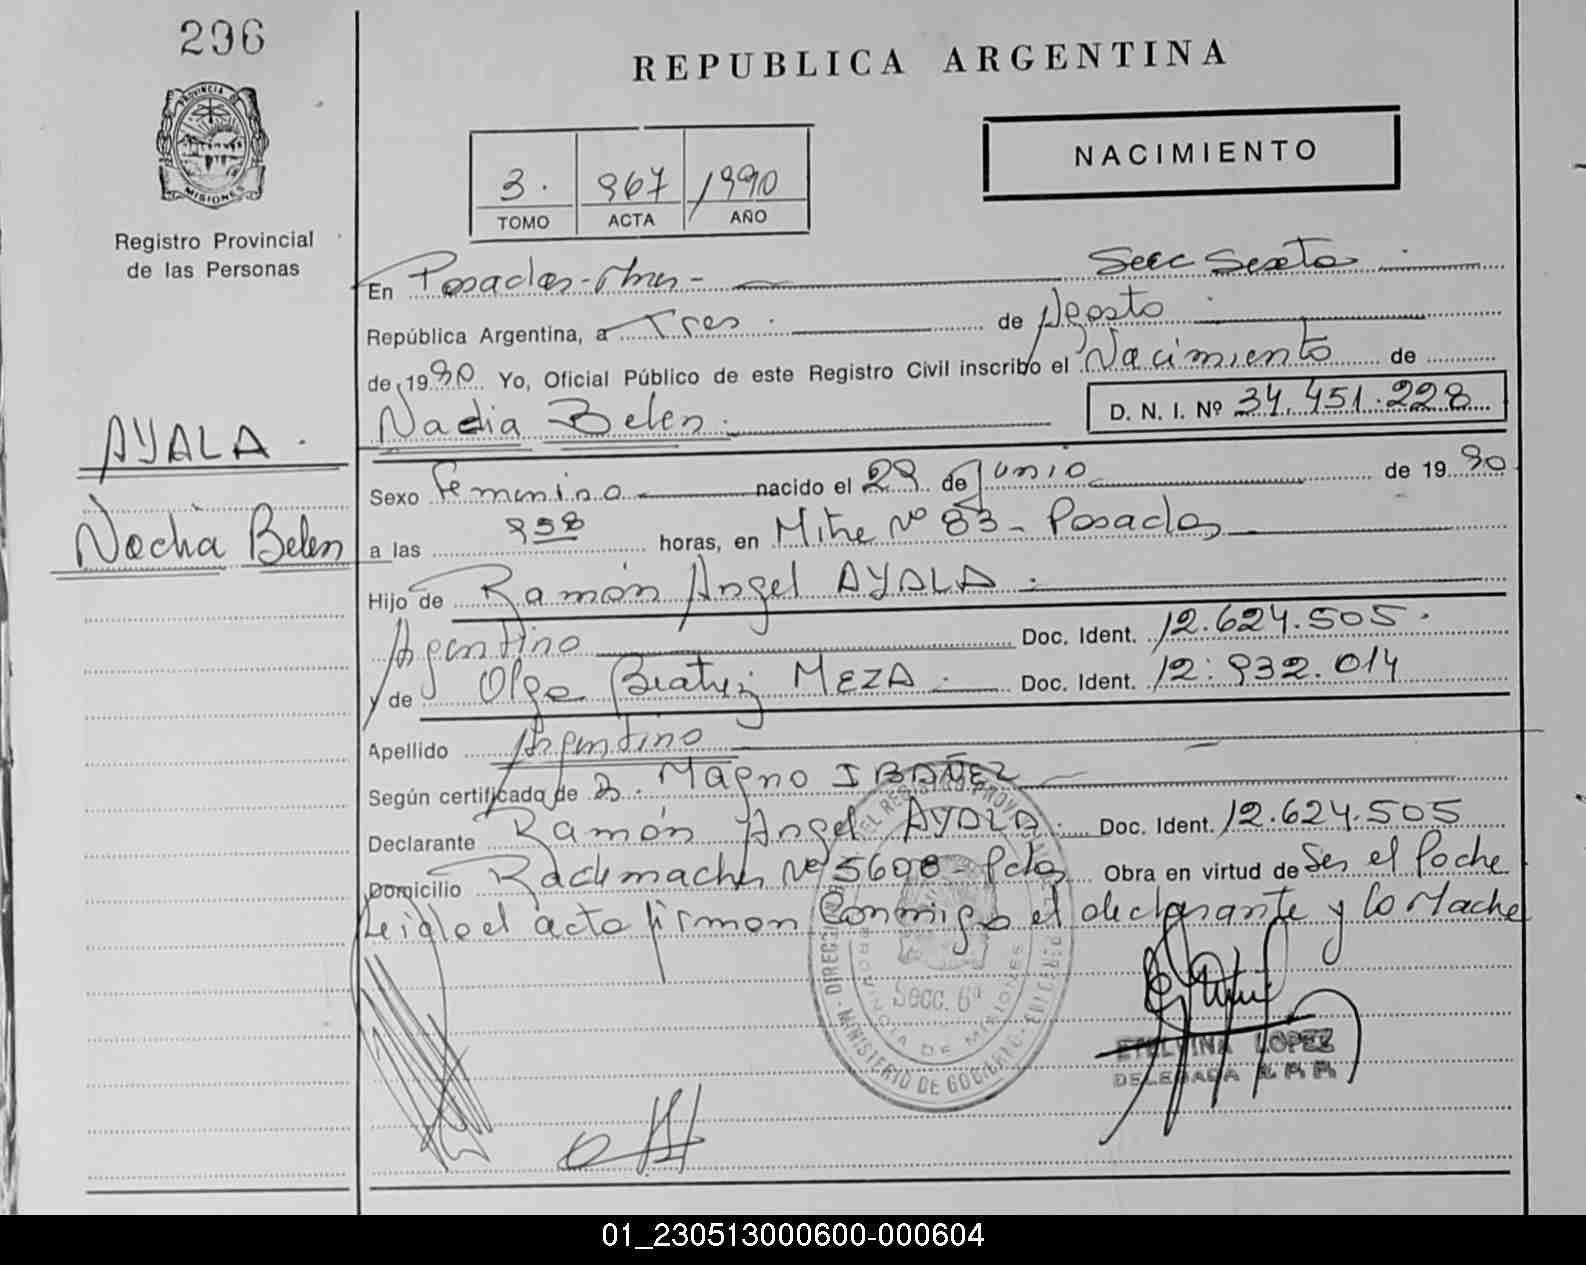 296
REPUBLICA ARGENTINA
PROVINCIA DE MISIONES
Registro Provincial
de las Personas
NACIMIENTO
3. 967 1990
TOMO ACTA AÑO
En Posadas-Mnes- Secc Sexta
República Argentina, a Tres de Agosto
de 1990 Yo, Oficial Público de este Registro Civil inscribo el Nacimiento de
Nadia Belen D. N. I. Nº 34.451.228
AYALA
Nadia Belen
Sexo Femenino nacido el 29 de Junio de 1990
a las 958 horas, en Mitre Nº 83 - Posadas
Hijo de Ramón Angel AYALA
Argentino Doc. Ident. 12.624.505
y de Olga Beatriz MEZA Doc. Ident. 12.932.014
Apellido Argentino
Según certificado de D. Magno IBAÑEZ
Declarante Ramón Angel AYALA Doc. Ident. 12.624.505
Domicilio Rademacher Nº 5698 - Pdas Obra en virtud de Ser el Padre
Leida el acta firman Conmigo el declarante y la Madre
Secc. 6ª
PROVINCIA DE MISIONES
MINISTERIO DE GOBIERNO
ETELVINA LOPEZ
DELEGADA R.P.P.
01_230513000600-000604